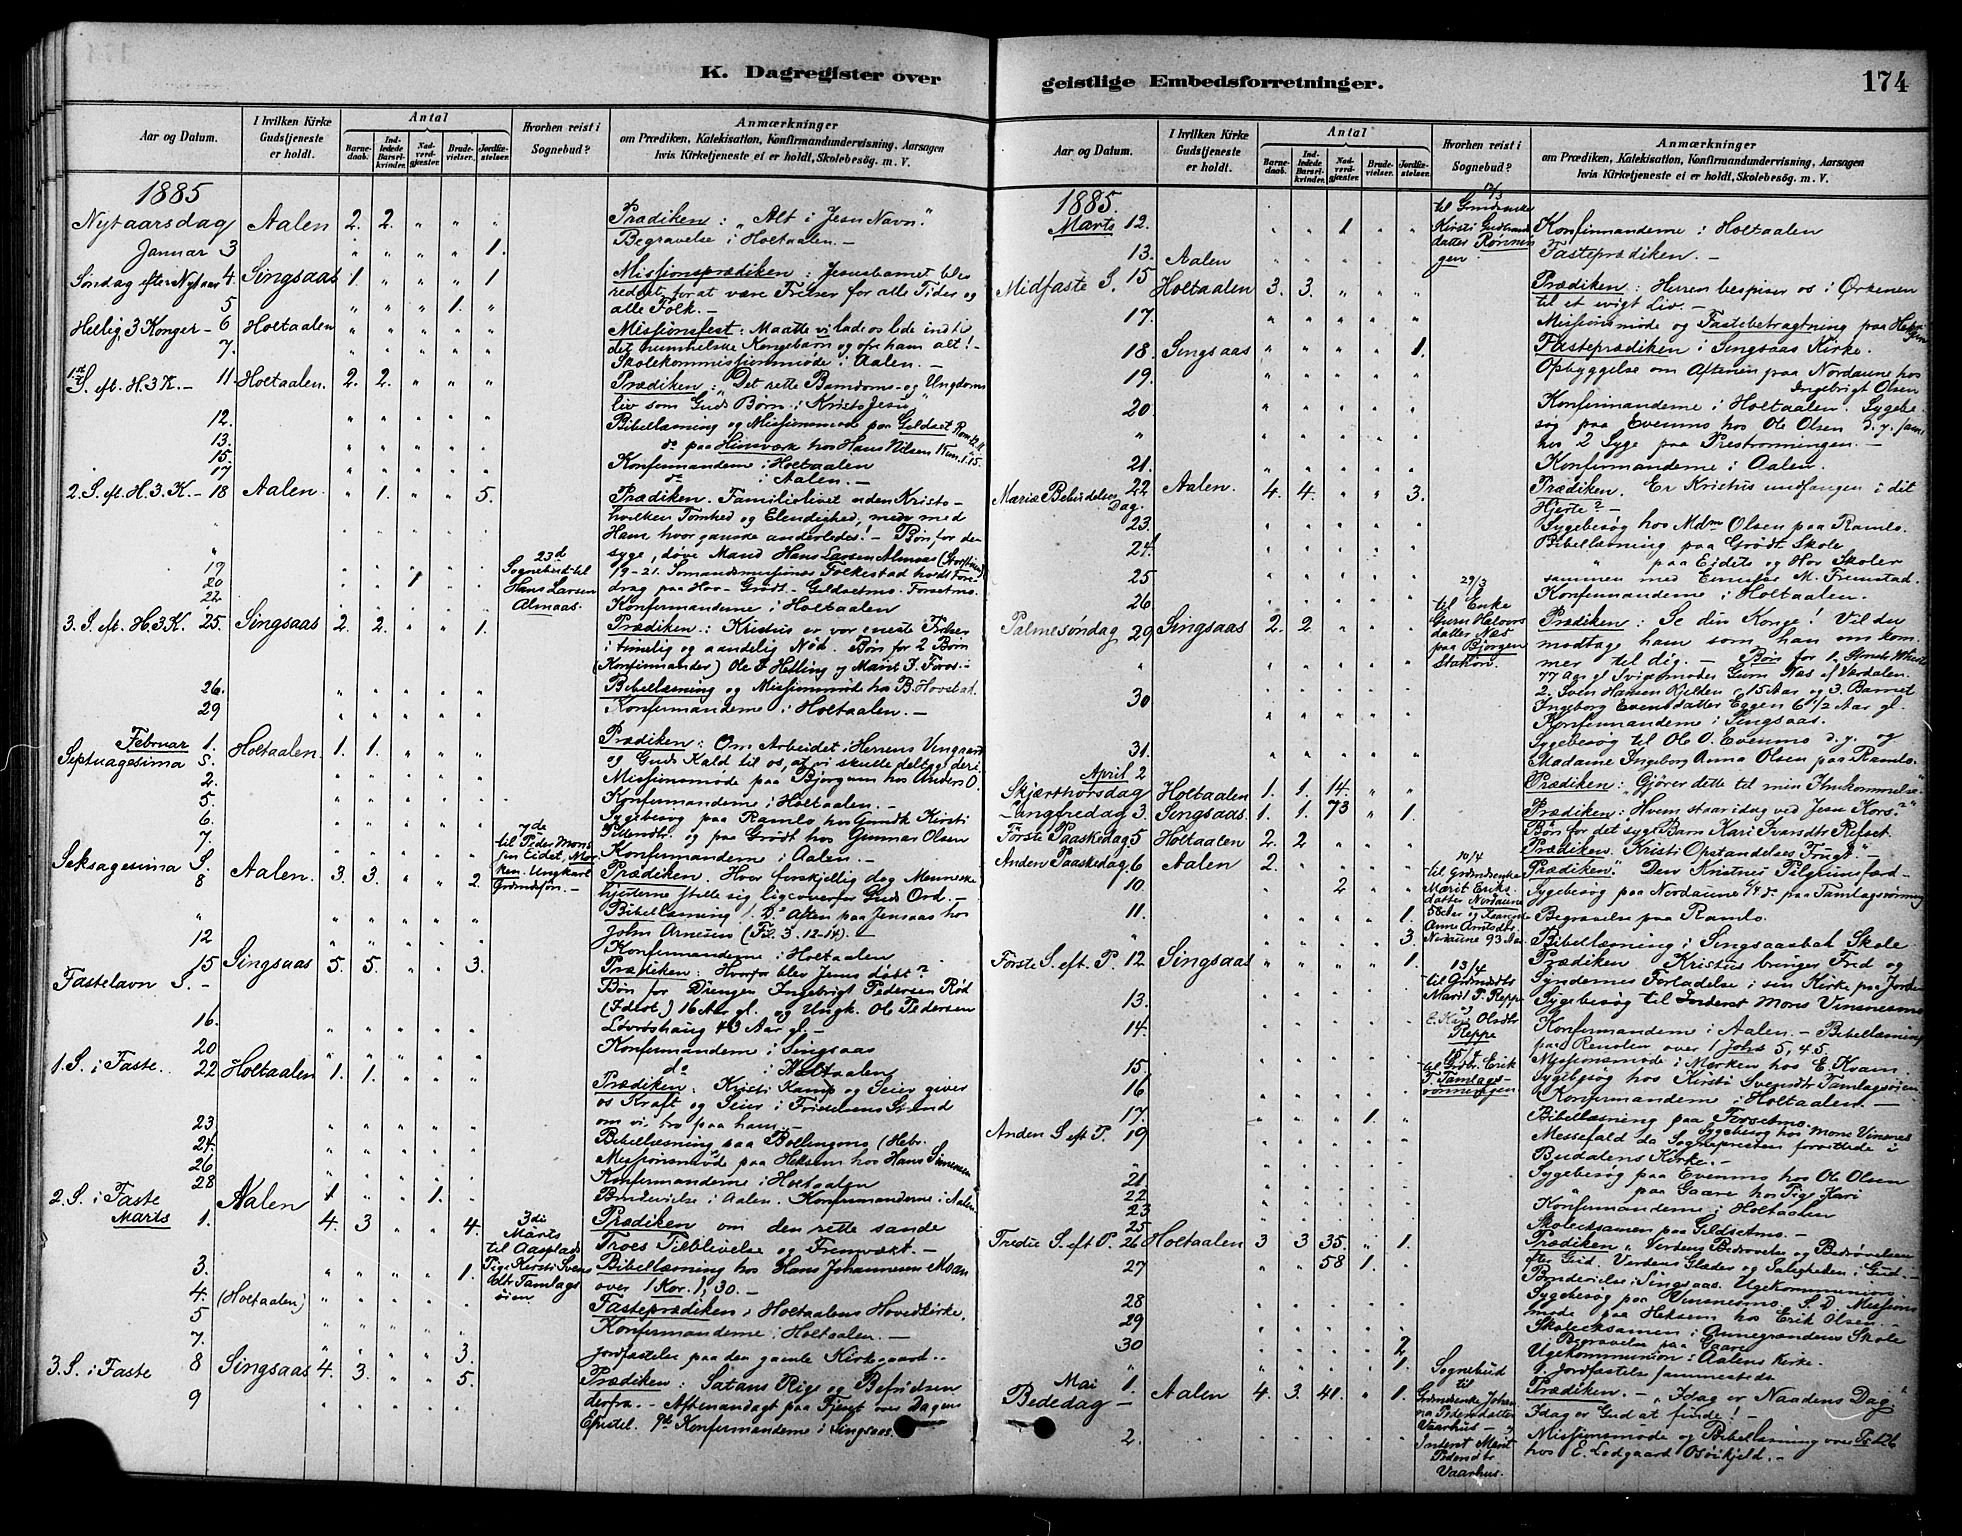 K. Dagregister over
geistlige Embedsforretninger.
174
Aar og Datum.
I hvilken Kirke Gudstjeneste er holdt.
Antal
Barnedaab.
Indledede Barselkvinder.
Nadverdgjæster.
Brudevielser.
Jordfæstelser.
Hvorhen reist i Sognebud?
Anmærkninger
om Prædiken, Katekisation, Konfirmandundervisning, Aarsagen
hvis Kirketjeneste ei er holdt, Skolebesøg. m. V.
1885
Nytaarsdag Aalen 2. 2. " " " Prædiken: "Alt i Jesu Navn."
Januar 3 " " " " 1. Begravelse i Holtaalen. —
Søndag efter Nytaar 4 Singsaas 1. " " " 1 Missionsprædiken: Jesusbarnet blev
reddet for at være Frelser for alle Tider og
5 " " " 1. " alle Folk. —
Hellig 3 Konger — 6 Holtaalen " " " " " Missionsfest: Maatte vi lade os lede ind til
det himmelske Kongebarn og ofre ham alt! —
7. Skolekommissionsmøde i Aalen.
1ste S. eft. H. 3 K. — 11 Holtaalen. 2. 2. " " " Prædiken: "Det rette Barndoms- og Ungdoms
liv som Guds Børn i Kristo Jesu"
12. Bibellæsning og Missionsmøde paa Geldaet
13. do paa Hinsværk hos Hans Nilsen
15. Konfirmanderne i Holtaalen
17 do i Aalen. —
2. S. eft. H. 3. K. — 18 Aalen. " 1. " " 5. Prædiken. Familielivet uden Kristo —
hvilken Tomhed og Elendighed, men med
Ham hvor ganske anderledes! — Bøn for den
syge, døve Mand Hans Larsen Almaas
19 23d Sognebud til Hans Larsen Almaas.
19-21. Sømandsmissionær Folkestad holdt Fore-
20 1 drag paa Hov - Grødt - Geldaetmo - Forsetmo.
22 Konfirmanderne i Holtaalen
3. S. eft. H. 3 K. 25. Singsaas 2. 2. " " 1. Prædiken: Kristus er vor eneste Frelser
i timelig og aandelig Nød. Bøn for 2 Børn
(Konfirmander) Ole J. Helling og Marit J. Foros. —
26. Bibellæsning og Missionsmøde hos B. Hovstad.
29 Konfirmanderne i Holtaalen. —
Februar 1. Holtaalen 1. 1. " " " Prædiken: Om Arbeidet i Herrens Vingaard
Septuagesima S. og Guds Kald til os, at vi skulle deltage deri
2. Missionsmøde paa Bjørgum hos Anders O.
5. Konfirmanderne i Holtaalen. —
6. Sygebesøg paa Ramlo hos Kirsti
7. og paa Grødt hos Gunnar Olsen
Konfirmanderne i Aalen. —
7de til Peder Monsen Eidet, Ungkarl
Seksagesima S. 8 Aalen. 3. 3. " " 2. Prædiken. Hvor forskjellig dog Menneske
hjerterne stille sig ligeoverfor Guds Ord. —
" Bibellæsning s. D. Aften paa Jensaas hos
John Arnesen (Fil. 3. 12-14). —
12 Konfirmanderne i Holtaalen
Fastelavn S. — 15 Singsaas 5. 5. " " 3. Prædiken: Hvorfor blev Jesus døbt?
Bøn for Drengen Ingebrigt Pedersen Rød
(Idiot) 16 Aar gl. og Ungk. Ole Pedersen
16. Løvrøshaug 43 Aar gl. —
20 Konfirmanderne i Singsaas
1. S. i Faste. 22 Holtaalen 1. 1. " " " do i Holtaalen
Prædiken: Kristi Kamp og Seier giver
os Kraft og Seier i Fristelsens Stund
om vi tro paa ham. —
23 Bibellæsning paa Bollingmo (Hebr.
24. Missionsmøde paa Heksem hos Hans Simensen
26 Konfirmanderne i Holtaalen
28 1 " " 1. Brudevielse i Aalen. Konfirmanderne i Aalen
2. S. i Faste Marts 1. Aalen 4. 3 " " 4. Prædiken om den rette sande
Troes Tilblivelse og Fremvækt. —
3die Marts til Aasplads Pige Kirsti Svensdtr Tamlagsøien
3. " " " " 1. Bibellæsning hos Hans Johannesen Moan
over 1 Kor. 1, 30. —
4. (Holtaalen) Fasteprædiken i Holtaalens Hovedkirke.
5 Konfirmanderne i Holtaalen. —
7. 3. Jordfæstelse paa den gamle Kirkegaard. —
3. S. i Faste 8 Singsaas 4. 3. " " 5. Prædiken: Satans Rige og Befrielsen
9 derfra. — Aftenandagt paa Fjeset over Dagens
Epistel. 9de Konfirmanderne i Singsaas
Aar og Datum.
I hvilken Kirke Gudstjeneste er holdt.
Antal
Barnedaab.
Indledede Barselkvinder.
Nadverdgjæster.
Brudevielser.
Jordfæstelser.
Hvorhen reist i Sognebud?
Anmærkninger
om Prædiken, Katekisation, Konfirmandundervisning, Aarsagen
hvis Kirketjeneste ei er holdt, Skolebesøg. m. V.
1885.
Marts 12. " " 1 " " 12/3 til Grundenke Kirsti Gudbrandsdatter Rønningen Konfirmanderne i Holtaalen
13. Aalen Fasteprædiken. —
Midfaste S. 15 Holtaalen 3. 3. " " " Prædiken: Herren bespiser os i Ørkenen
til et evigt Liv. —
17. Missionsmøde og Fastebetragtning paa
18 Singsaas " " " " 1. Fasteprædiken i Singsaas Kirke.
19. Opbyggelse om Aftenen paa Nordaune hos
Ingebrigt Olsen
20 Konfirmanderne i Holtaalen. Sygebe-
søg paa Evenmo hos Ole Olsen d. y. samt
" hos 2 Syge paa Prestrønningen. —
21. Konfirmanderne i Aalen.
Mariæ Bebudelses Dag. 22 Aalen. 4. 4. " " 3. Prædiken. Er Kristus undfangen i dit
Hjerte? —
23. Sygebesøg hos Mdm Olsen paa Ramlo.
24 Bibellæsning paa Grødt Skole
25 " paa Eidets og Hov Skoler
sammen med Emissær M. Fremstad
26 Konfirmanderne i Holtaalen.
Palmesøndag 29 Singsaas 2. 2 " " " 29/3 til Enke Guru Halvorsdatter Næs paa Bjørgen Stasion. Prædiken: Se din Konge! Vil du
modtage ham som han om kom-
mer til dig. — Bøn for 1,
77 Aar gl Svigermoder Guru Næs af Værdalen.
2. Sven Hansen Kjelden 15 Aar og 3. Barnet
30 Ingeborg Evensdatter Eggen 6 1/2 Aar gl.
Konfirmanderne i Singsaas.
31. Sygebesøg til Ole O. Evenmo d. y. og
Madame Ingeborg Anna Olsen paa Ramlo.
Skjærthorsdag April 2 Holtaalen 1. 1. 14. " " Prædiken: "Gjører dette til min Ihukommelse"
Langfredag 3. Singsaas. 1. 1. 73 " 1. Prædiken: Hvem staar idag ved Jesu Kors?"
Bøn for det syge Barn Kari Svansdtr Refset
Første Paaskedag 5 Holtaalen 2. 2 Prædiken. "Kristi Opstandelses Frugt."
Anden Paaskedag 6 Aalen 2. Prædiken: "Den Kristnes Pilgrimsfærd —
10. " " 2 " " 10/4 til Grdmdenke Marit Eriksdatter Nordaune 58 Aar og Nordaune 93 Aar Sygebesøg paa Nordaune 7/4 d. paa Tamlagsrønning
11. 1. Begravelse paa Ramlo.
" 3. Bibellæsning i Singsaasbak Skole
Første S. eft. P. 12 Singsaas " " " " 1. Prædiken Kristus bringer Fred og
Syndernes Forladelse i sin Kirke paa Jorden
13. 13/4 til Grdmdtr Marit P. Reppe og E. Kari Olsdtr Reppe Sygebesøg til Inderst Mons Vinsnesmo
14. Konfirmanderne i Aalen. — Bibellæsning
paa Renolen over 1 Johs 5, 4. 5
15. 15/4 til Grdtr. Erik T. Tamlagsrønningen Missionsmøde i Morken hos E. Kvam.
16 Sygebesøg hos Kirsti Svendtr Tamlagsøien
Konfirmanderne i Holtaalen. —
17 1. Bibellæsning paa Forsetmo
Sygebesøg hos Mons Vinsnes
Anden S. eft P. 19 Messefald da Sognepresten forrettede i
Budalens Kirke. —
21 Sygebesøg paa Evenmo hos Ole Olsen
22 " paa Gaare hos Pige Kari
23 Konfirmanderne i Holtaalen
25 Skoleeksamen paa Geldsetmo. —
Tredie S. eft P. 26 Holtaalen 3 3 35. " 1. Prædiken "Verdens Bedrøvelse og Bedrøvelsen
efter Gud. Verdens Glæder og Saligheden i Gud. —
27 58 1. Brudevielse i Singsaas. Ugekommunion.
Sygebesøg paa Vinsnesmo. S. D. Missions
28 møde paa Heksem hos Erik Olsen. —
29 Skoleeksamen i Annegrandens Skole
30 2 Begravelse paa Gaare
Ugekommunion i Aalens Kirke.
" 1. Jordfæstelse sammesteds.
Bededag Mai 1. Aalen 4. 3. 41. " 1. Sognebud til Grdmdenke Johanna Pedersdatter Vaarhus og Inderst Marit Pedersdtr Vaarhus. Prædiken. — "Idag er Naadens Dag,
Idag er Gud at finde! —
2. Missionsmøde og Bibellæsning over Ps 126
hos E. Lodgaard Bøikjeld. —